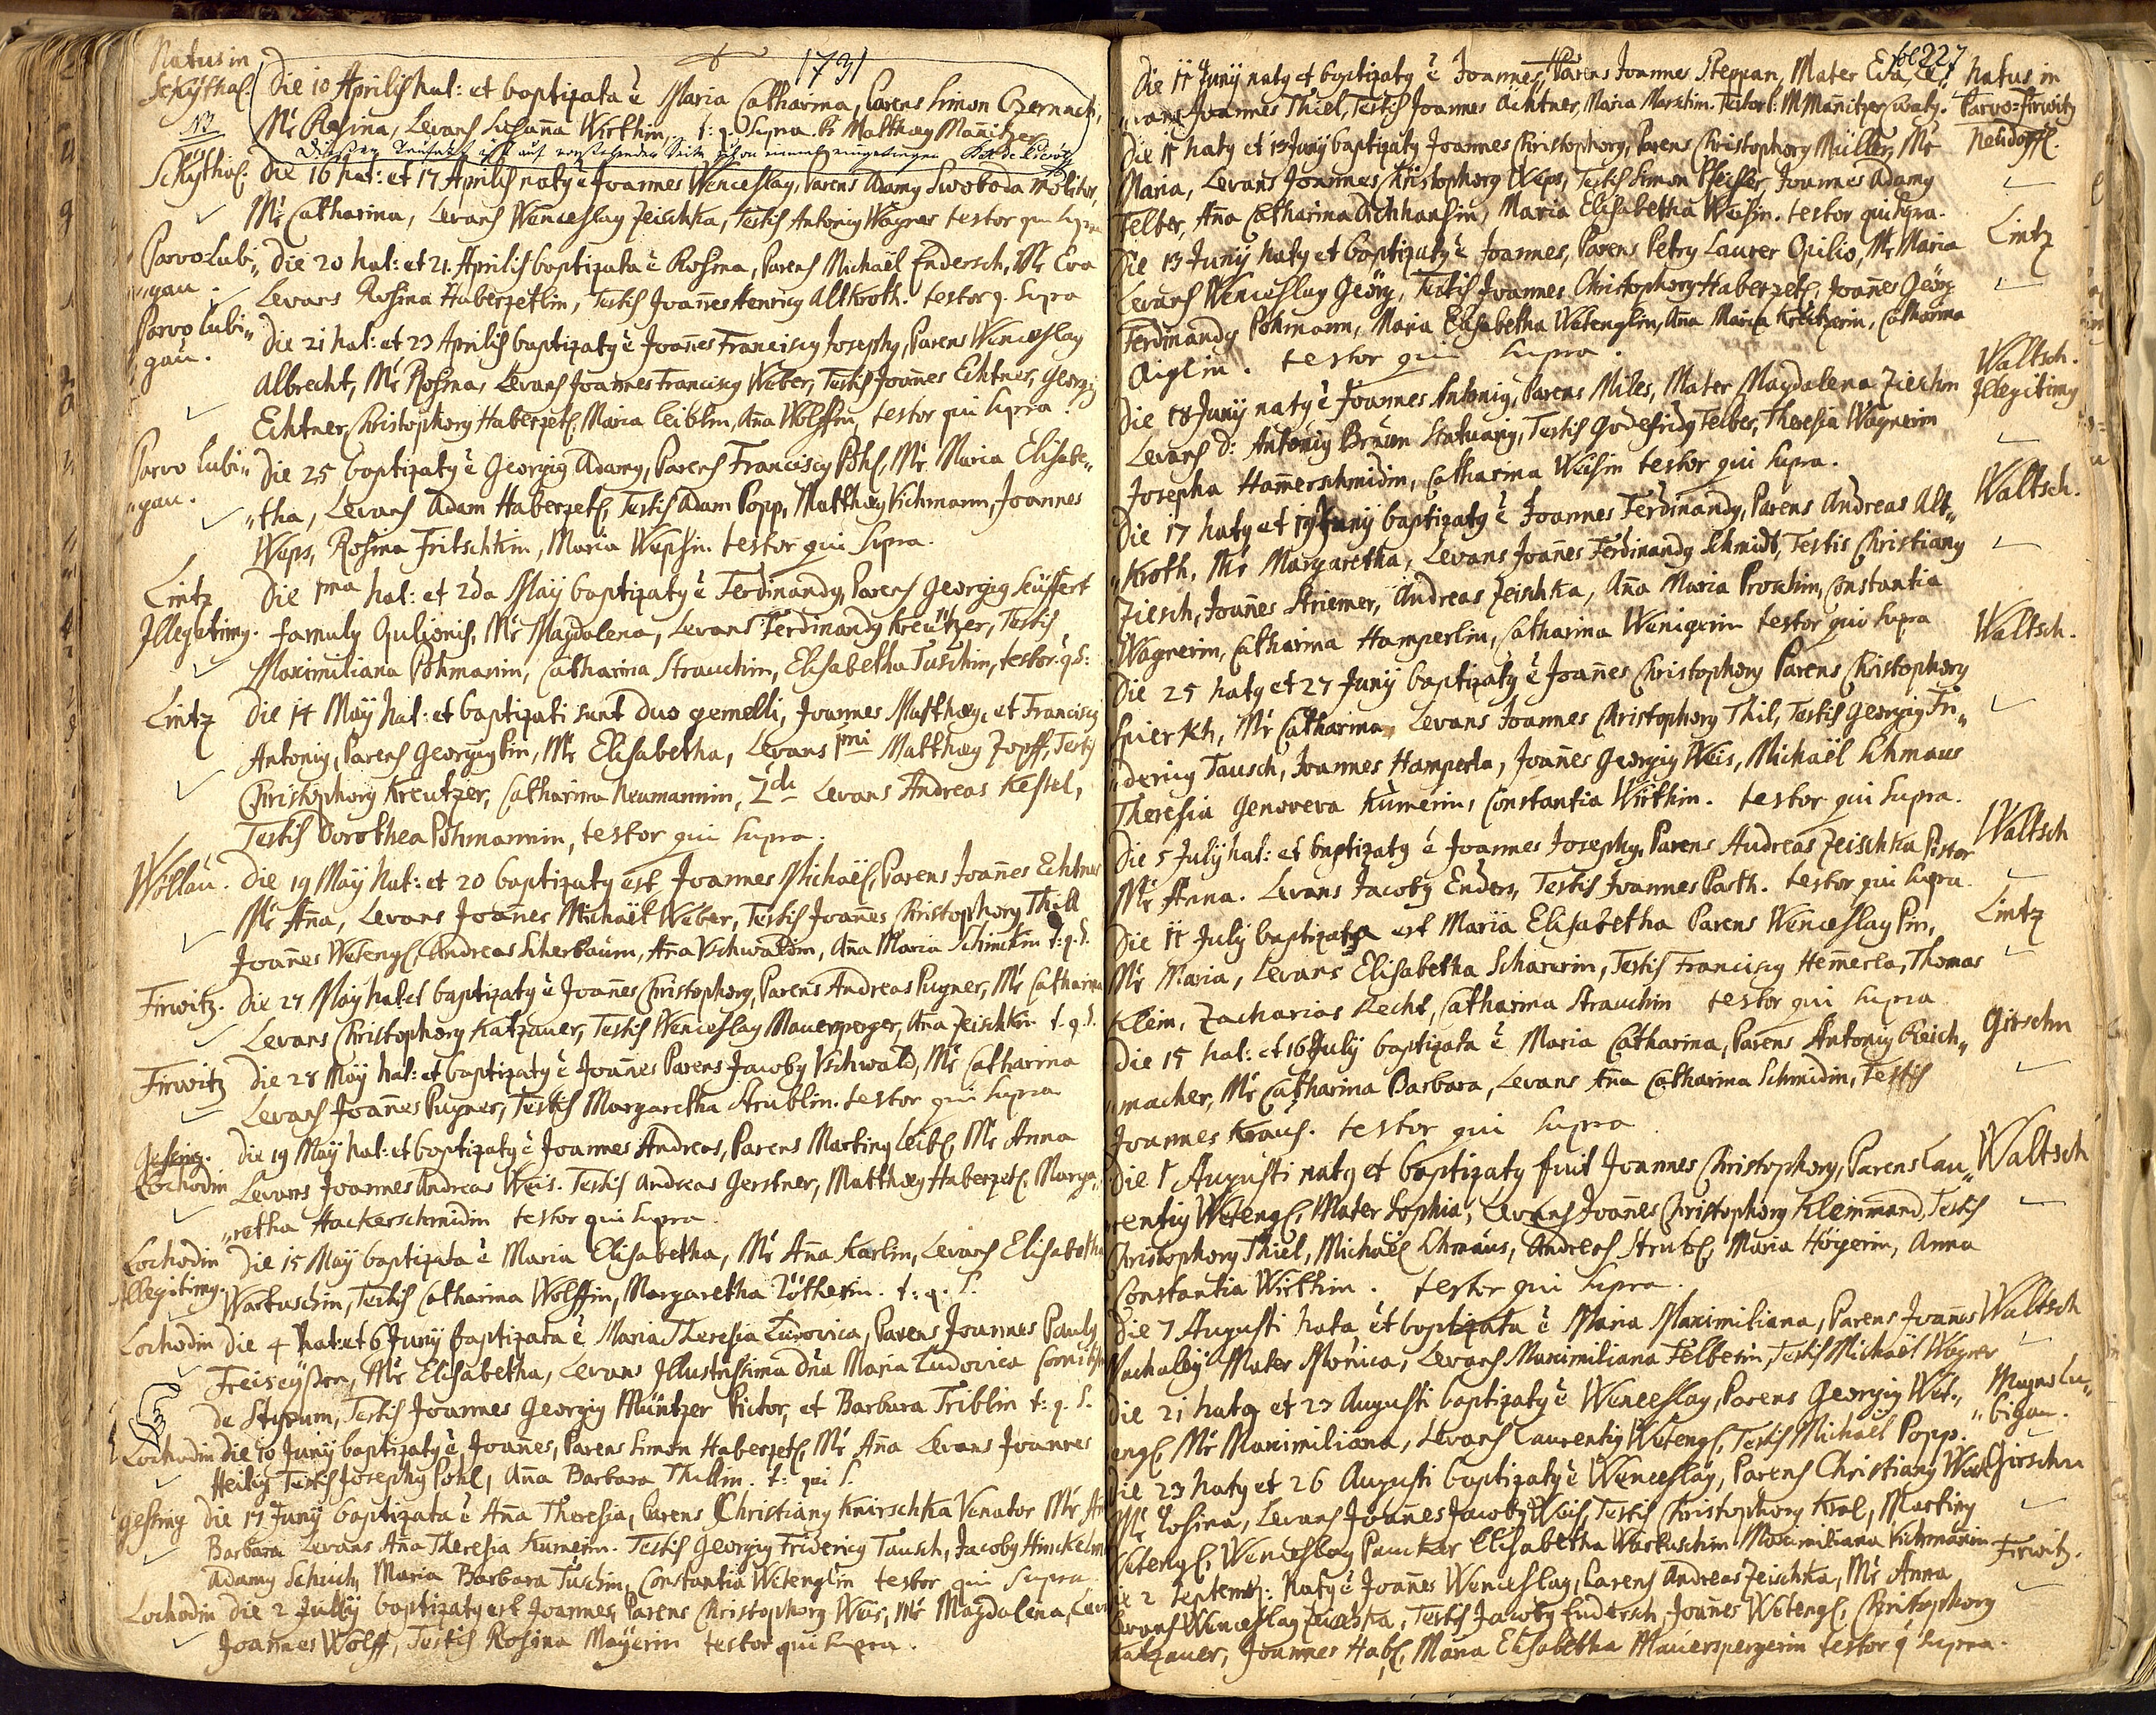 1731
Natus in
Schÿthal. Die 10 Aprilis nat: et baptizata ē Maria Catharina, Parens Simon Czernach,
NB Mr Rosina, Levans Susana Wirthin, t: q. supra. Matthæy Manitzer
Schÿthal. Die 16 nat: et 17 Aprilis naty ē Joannes Wenceslay, Parens Adamy Swoboda Molitor,
Mr Catharina, Levans Wenceslay Zeischka, Testis Antoniy Wagner testor qui supra
Parvo Lubi„ Die 20 nat: et 21. Aprilis baptizata ē Rosina, Parens Michaël Endersch, Mr Eva
„gau. Levans Rosina Haberzetlin, Testis Joañes Henricy Altkroth. testor q. supra
Parvo Lubi„ Die 21 nat: et 23 Aprilis baptizaty ē Joañes Franciscy Josephy, Parens Wenceslay
gau. Albrecht, Mr Rosina, Levans Joannes Franciscy Weber, Testis Joañes Echtner, Georgiy
Echtner, Christophory Haberzetl, Maria Leiblin, Aña Wolffin, testor qui supra.
Parvo Lubi„ Die 25 baptizaty ē Georgiy Adamy, Parens Franciscy Pöhl, Mr Maria Elisabe„
„gau. „tha, Levans Adam Haberzetl, Testis Adam Popp, Matthæy Kichmann, Joannes
Weps, Rosina Fritschkin, Maria Wepsin. testor qui supra.
Lintz Die 1ma nat: et 2da Maÿ baptizaty ē Ferdinandy, Parens Georgiy Seüffert
Illegitimy. famuly Opilionis, Mr Magdalena, Levans Ferdinandy Kreützer, Testis
Maximiliana Pöhmanin, Catharina Strauchin, Elisabetha Tuschin, testor. q S:
Lintz Die 14 Maÿ nat: et baptizati sunt duo gemelli, Joannes Matthæy, et Franciscy
Antoniy, Parens Georgiy Pin, Mr Elisabetha, Levans 1mi Matthæy Zopff, Testis
Christophory Kreutzer, Catharina Neumannin, 2di Levans Andreas Kessel,
Testis Dorothea Pöhmannin, testor qui supra.
Wöllau. Die 19 Maÿ nat: et 20 baptizaty est Joannes Michaël, Parens Joañes Echtner
Mr Aña, Levans Joañes Michaël Weber, Testis Joañes Christophory Thill
Joañes Wetengl, Andreas Scherbaum, Aña Uschwaldin, Aña Maria Schinckin t: q. S.
Firwitz. Die 27 Maÿ nat et baptizaty ē Joañes Christophory, Parens Andreas Pugner, Mr Catharina
Levans Christophory Katzauer, Testis Wenceslay Mauersperger, Aña Zeischkin t. q. S.
Firwitz Die 28 Maÿ nat: et baptizaty ē Joañes Parens Jacoby Uschwald, Mr Catharina
Levans Joañes Pugner, Testis Margaretha Strublin. testor qui supra
Gessing. Die 19 Maÿ nat: et baptizaty ē Joannes Andreas, Parens Martiny Leibl, Mr Anna
Lochodin Levans Joannes Andreas Weis. Testis Andreas Gerstner, Matthæy Haberzetl, Marga„
„retha Hackerschmidin testor qui supra
Lochodin Die 15 Maÿ baptizata ē Maria Elisabetha, Mr Aña Karlin, Levans Elisabetha
Illegitimy. Wartuschin, Testis Catharina Wolffin, Margaretha Rötherin. t: q. S.
Lochodin Die 4 nat: et 6 Junÿ baptizata ē Maria Theresia Ludovica, Parens Joannes Pauly
Freiseÿsen, Mr Elisabetha, Levans Illustrissima Dña Maria Ludovica Comitissa
de Styrum, Testis Joannes Georgiy Müntzer Pictor, et Barbara Triblin t: q. S.
Lochodin Die 10 Junÿ baptizaty ē Joañes, Parens Simon Haberzetl, Mr Aña Levans Joannes
Heilig Testis Josephy Pohl, Aña Barbara Thillin. t: qui S.
Gessing Die 17 Junÿ baptizata ē Aña Theresia, Parens Christiany Knirschka Venator Mr
Barbara Levans Aña Theresia Kumerin. Testis Georgiy Fridericy Tausch, Jacoby Hinckelm
Adamy Schuch, Maria Barbara Tuschin, Constantia Wetenglin testor qui supra
Lochodin Die 2 Julÿ baptizaty est Joannes, Parens Christophory Weis, Mr Magdalena, Lev
Joannes Wolff, Testis Rosina Maÿerin testor qui supra.
fol 227
Die 11 Junÿ naty et baptizaty ē Joannes, Parens Joannes Steppan, Mater Eva, Le„ natus in
„vans Joannes Thiel, Testis Joannes Achtner, Maria Marxtin. Parvo=Firwitz
Die 11 naty et 13 Junÿ baptizaty Joannes Christophory, Parens Christophory Müller, Mr Neüdorffl.
Maria, Levans Joannes Christophory Weps, Testis Simon Pfeiffer, Joannes Adamy
Felber, Aña Catharina Dichhansin, Maria Elisabetha Weisin. testor qui supra.
Die 13 Junÿ naty et baptizaty ē Joannes, Parens Petry Laurer Opilio, Mr Maria Lintz
Levans Wenceslay Geörg, Testis Joannes Christophory Haberzetl, Joañes Geörg
Ferdinandy Pöhmann, Maria Elisabetha Wetenglin, Aña Maria Kreitzerin, Catharina
Aiglin. testor qui supra.
Die 18 Junÿ naty ē Joannes Antoniy, Parens Miles, Mater Magdalena Zieschin Waltsch. Illegitimy
Levans D: Antoniy Braun Statuary, Testis Godefridy Felber, Theresia Wagnerin
Josepha Hamerschmidin, Catharina Weisin testor qui supra.
Die 17 naty et 19 Junÿ baptizaty ē Joannes Ferdinandy, Parens Andreas Alt„ Waltsch.
„Kroth, Mr Margaretha, Levans Joañes Ferdinandy Schmidt, Testis Christiany
Ziesch, Joañes Striemer, Andreas Zeischka, Aña Maria Proschin, Constantia
Wagnerin, Catharina Hamperlin, Catharina Wenigerin testor qui supra
Die 25 naty et 27 Junÿ baptizaty ē Joañes Christophory Parens Christophory Waltsch.
Spierkh, Mr Catharina, Levans Joannes Christophory Thil, Testis Georgiy Fri„
„dericy Tausch, Joannes Hamperla, Joañes Georgiy Weis, Michaël Schmaus
Theresia Genoveva Kumerin, Constantia Wirthin. testor qui supra.
Die 5 Julÿ nat: et baptizaty ē Joannes Josephy, Parens Andreas Zeischka Pistor Waltsch
Mr Anna. Levans Jacoby Enders, Testis Joannes Parth. testor qui supra
Die 11 Julÿ baptizata est Maria Elisabetha Parens Wenceslay Pin, Lintz
Mr Maria, Levans Elisabetha Scharerin, Testis Franciscy Hemerla, Thomas
Klein, Zacharias Recht, Catharina Strauchin testor qui supra
Die 15 nat: et 16 Julÿ baptizata ē Maria Catharina, Parens Antoniy Reisch„ Girschn
„macher, Mr Catharina Barbara, Levans Aña Catharina Schmidin, Testis
Joannes Kraus. testor qui supra
Die 1 Augusti naty et baptizaty fuit Joannes Christophory, Parens Lau„ Waltsch
rentiy Wetengl, Mater Sophia, Levans Joañes Christophory Kleinmand, Testis
Christophory Thiel, Michaël Schmaus, Andreas Strubl, Maria Hoÿerin, Anna
Constantia Wirthin. testor qui supra.
Die 7 Augusti nata et baptizata ē Maria Maximiliana, Parens Joañes Waltsch
Machaloÿ Mater Monica, Levans Maximiliana Felberin, Testis Michaël Wagner
Die 21 naty et 23 Augusti baptizaty ē Wenceslay, Parens Georgiy Wet„ Magno Lu„
engl, Mr Maximiliana, Levans Laurentiy Wetengl, Testis Michaël Popp. „bigau.
Die 23 naty et 26 Augusti baptizaty ē Wenceslay, Parens Christiany Weis Girschn
Mr Rosina, Levans Joañes Jacoby Weis, Testis Christophory Kral, Martiny
Wetengl, Wenceslay Paucker Elisabetha Wartuschin Maximiliana Kichmanin
Die 2 Septemb: naty ē Joañes Wenceslay, Parens Andreas Zeischka, Mr Anna Firwitz.
Levans Wenceslay Zeischka, Testis Jacoby Endersch, Joañes Wetengl, Christophory
Katzauer, Joannes Habl, Maria Elisabetha Mauerspergerin testor q supra.